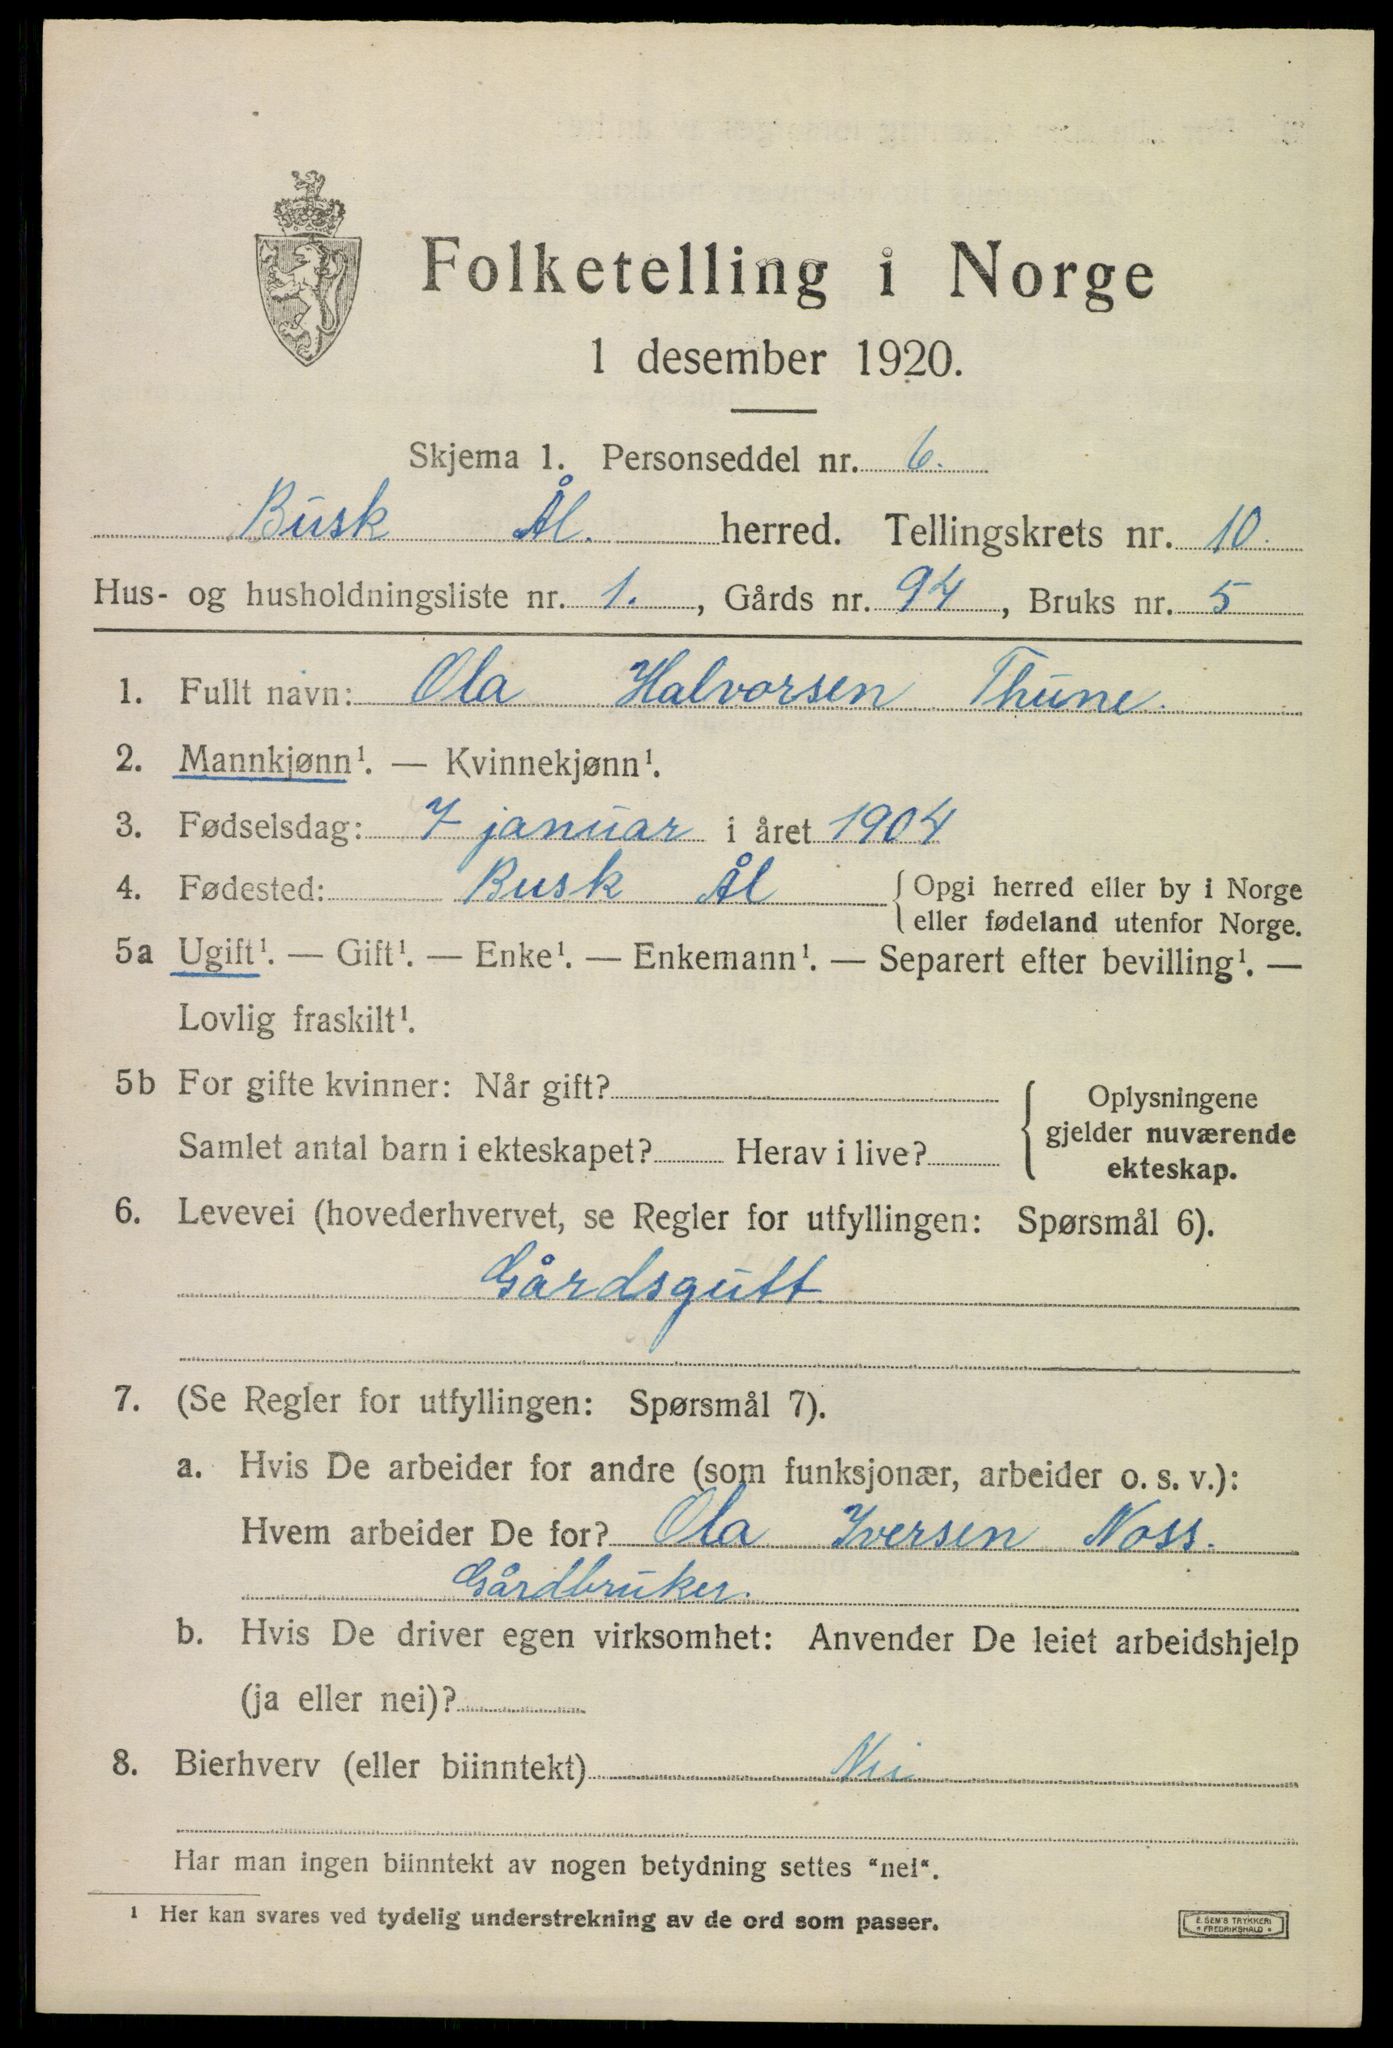 Folketelling i Norge
1 desember 1920.
Skjema 1. Personseddel nr. 6.
Busk Ål. herred. Tellingskrets nr. 10.
Hus- og husholdningsliste nr. 1. , Gårds nr. 94 , Bruks nr. 5
1. Fullt navn: Ola Halvorsen Thune.
2. Mannkjønn¹. — Kvinnekjønn¹.
3. Fødselsdag: 7 januar i året 1904
4. Fødested: Busk Ål { Opgi herred eller by i Norge
eller fødeland utenfor Norge.
5a Ugift¹. — Gift¹. — Enke¹. — Enkemann¹. — Separert efter bevilling¹. —
Lovlig fraskilt¹.
5b For gifte kvinner: Når gift?
Samlet antal barn i ekteskapet? Herav i live?
Oplysningene
gjelder nuværende
ekteskap.
6. Levevei (hovederhvervet, se Regler for utfyllingen: Spørsmål 6).
Gårdsgutt
7. (Se Regler for utfyllingen: Spørsmål 7).
a. Hvis De arbeider for andre (som funksjonær, arbeider o. s. v.):
Hvem arbeider De for? Ola Iversen Noss.
Gårdbruker.
b. Hvis De driver egen virksomhet: Anvender De leiet arbeidshjelp
(ja eller nei)?
8. Bierhverv (eller biinntekt) Nei
Har man ingen biinntekt av nogen betydning settes "nei".
¹ Her kan svares ved tydelig understrekning av de ord som passer.
E. SEM'S TRYKKERI
* FREDRIKSHALD *